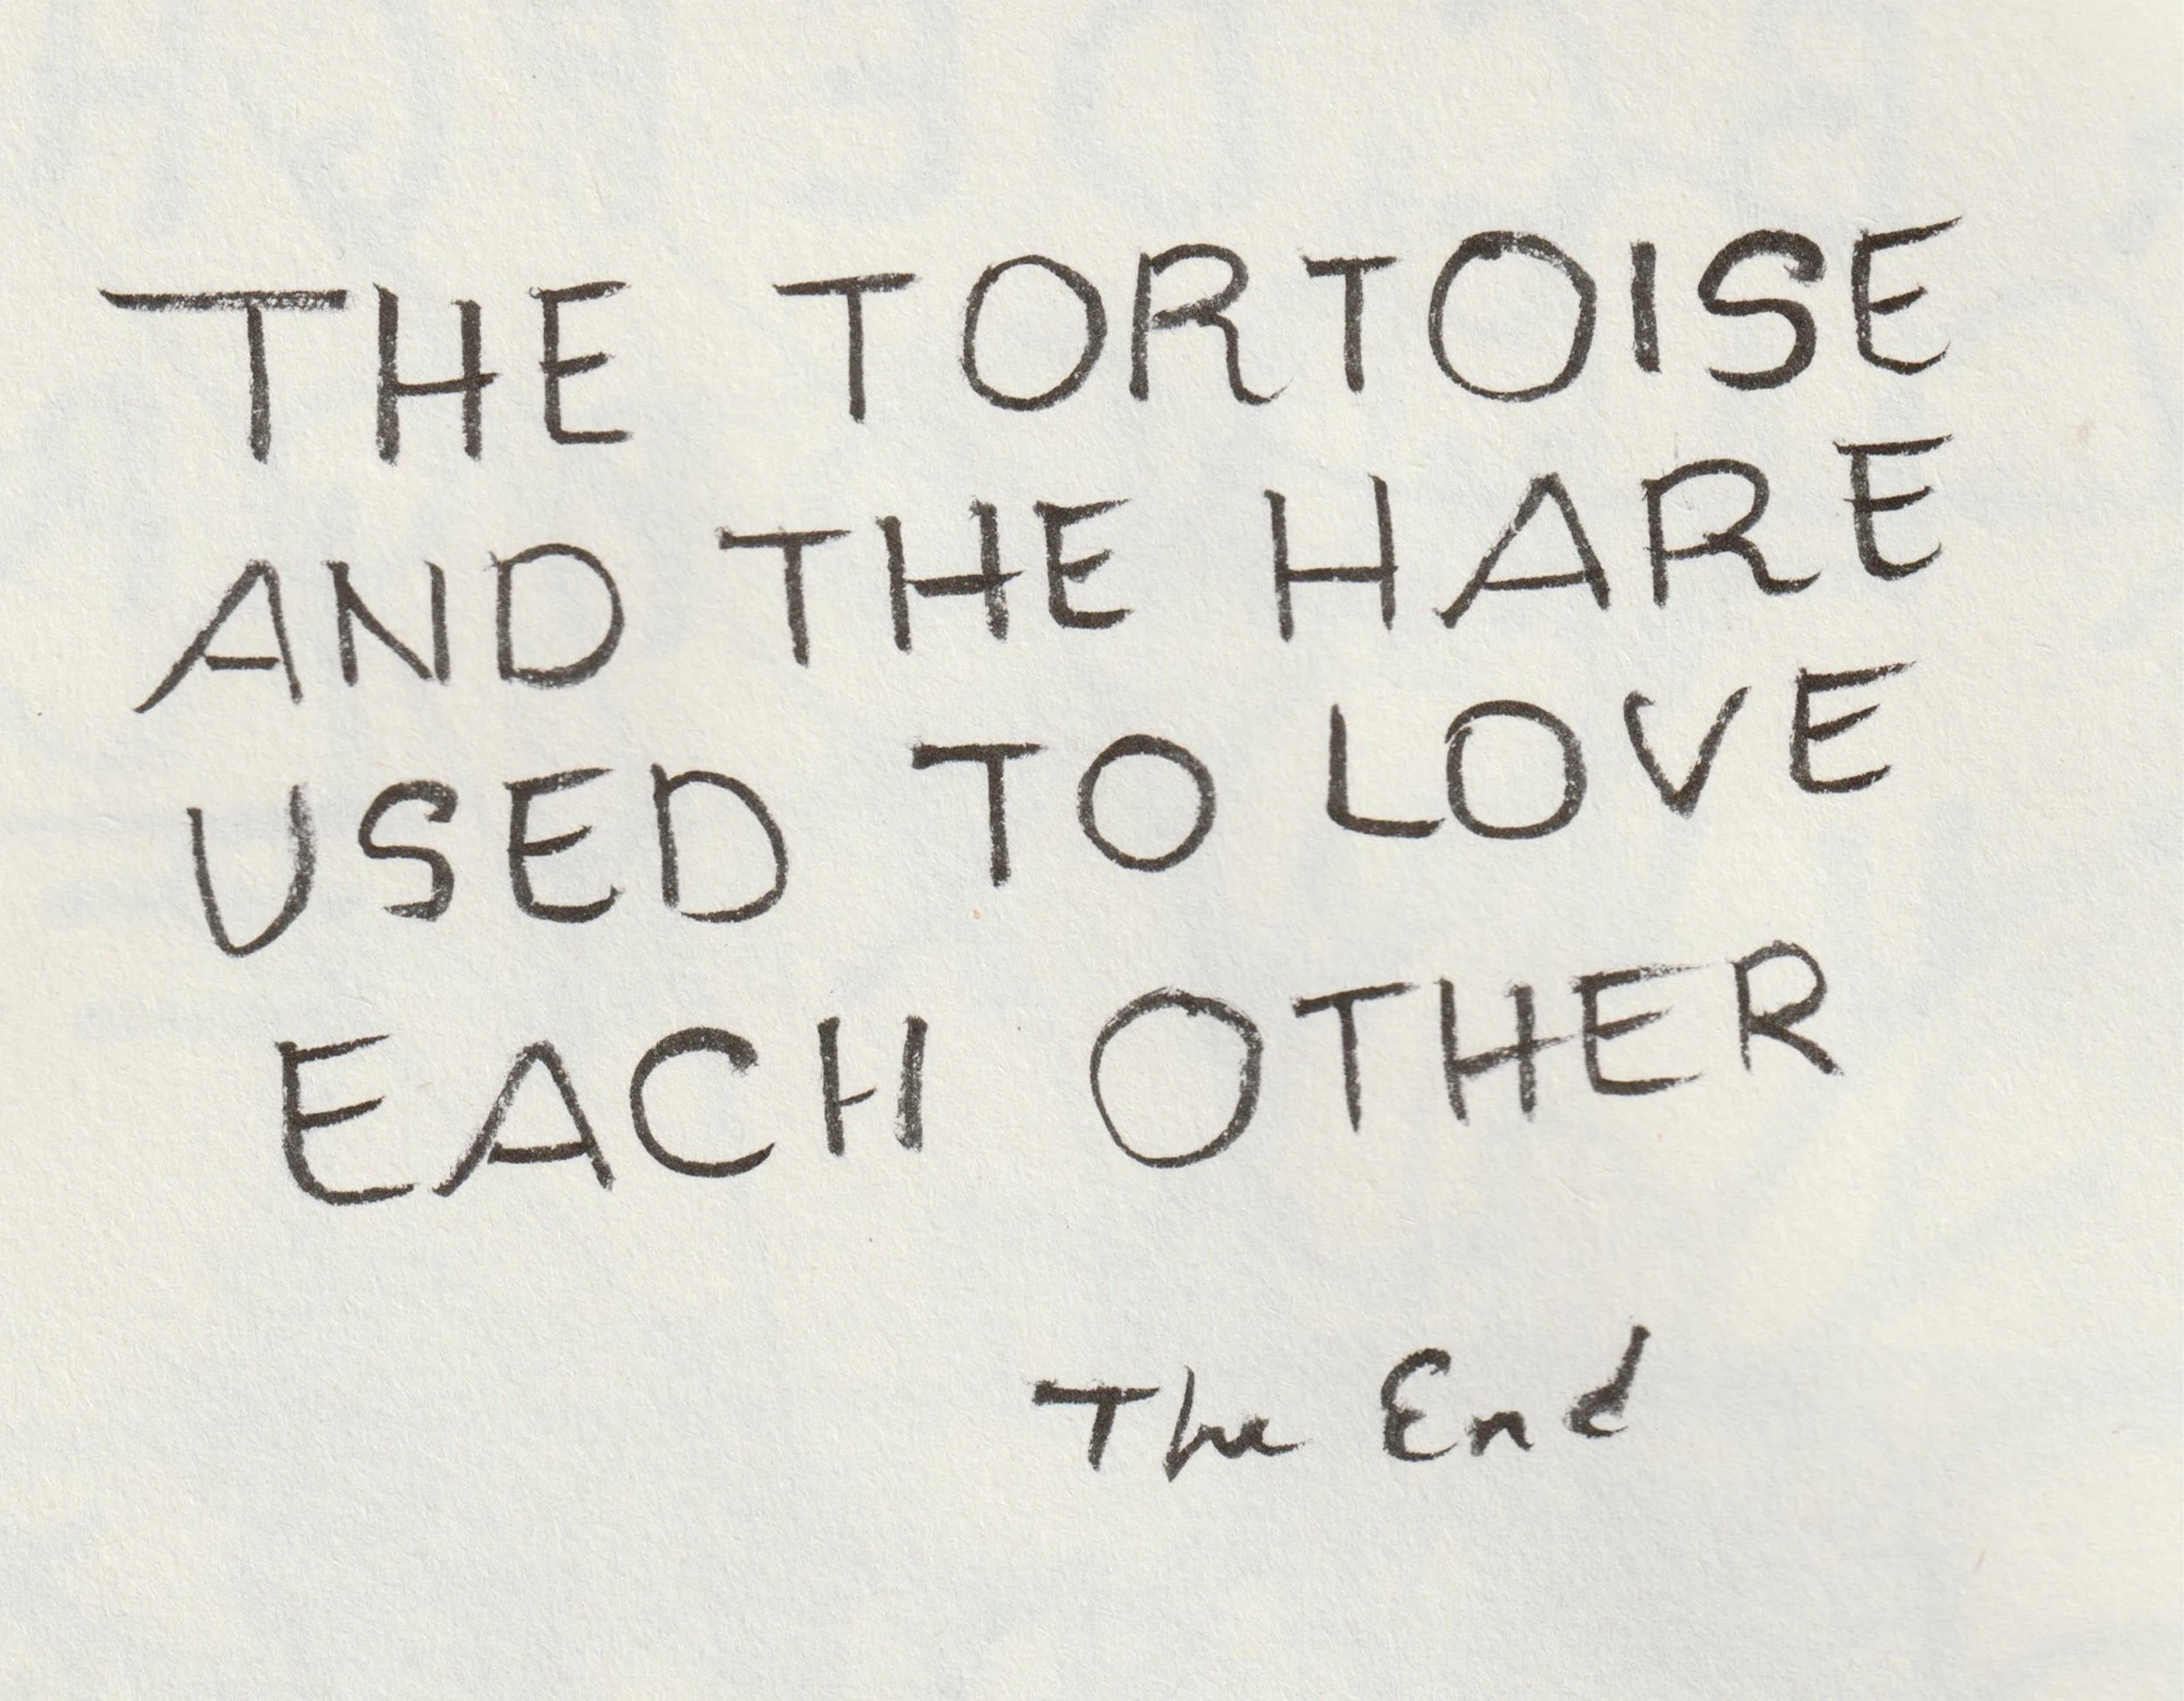 THE TORTOISE
AND THE HARE
USED TO LOVE
EACH OTHER
The End